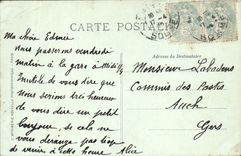 CARTE POSTALE
Adresse du Destinataire
Ma chère Edmée
Nous passerons vendredi
matin à la gare à midi 1/2
Inutile de vous dire que
nous serions très heureux
de vous dire un petit
bonjour, si cela ne
vous dérange pas trop
de venir à cette heure Alice
Monsieur Labadens
Commis des Postes
Auch
Gers